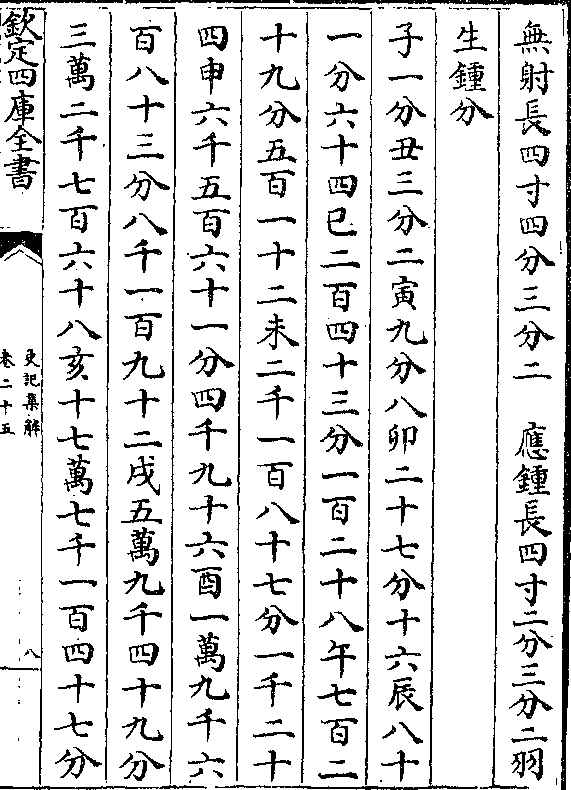 無射長四寸四分三分二　應鍾長四寸二分三分二羽
生鍾分
子一分丑三分二寅九分八卯二十七分十六辰八十
一分六十四巳二百四十三分一百二十八午七百二
十九分五百一十二未二千一百八十七分一千二十
四申六千五百六十一分四千九十六酉一萬九千六
百八十三分八千一百九十二戌五萬九千四十九分
三萬二千七百六十八亥十七萬七千一百四十七分
欽定四庫全書
史記集解
卷二十五
八